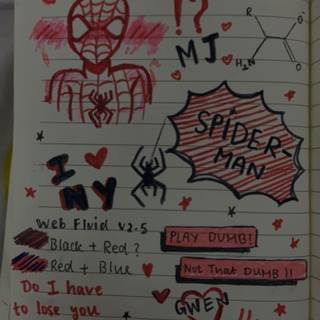 !?
MJ
R
O
H₂N
O
SPIDER-
MAN
I ♥
NY
Web Fluid V2.5
Black + Red?
PLAY DUMB!
Red + Blue
Not That DUMB!!
Do I have
to lose you
GWEN